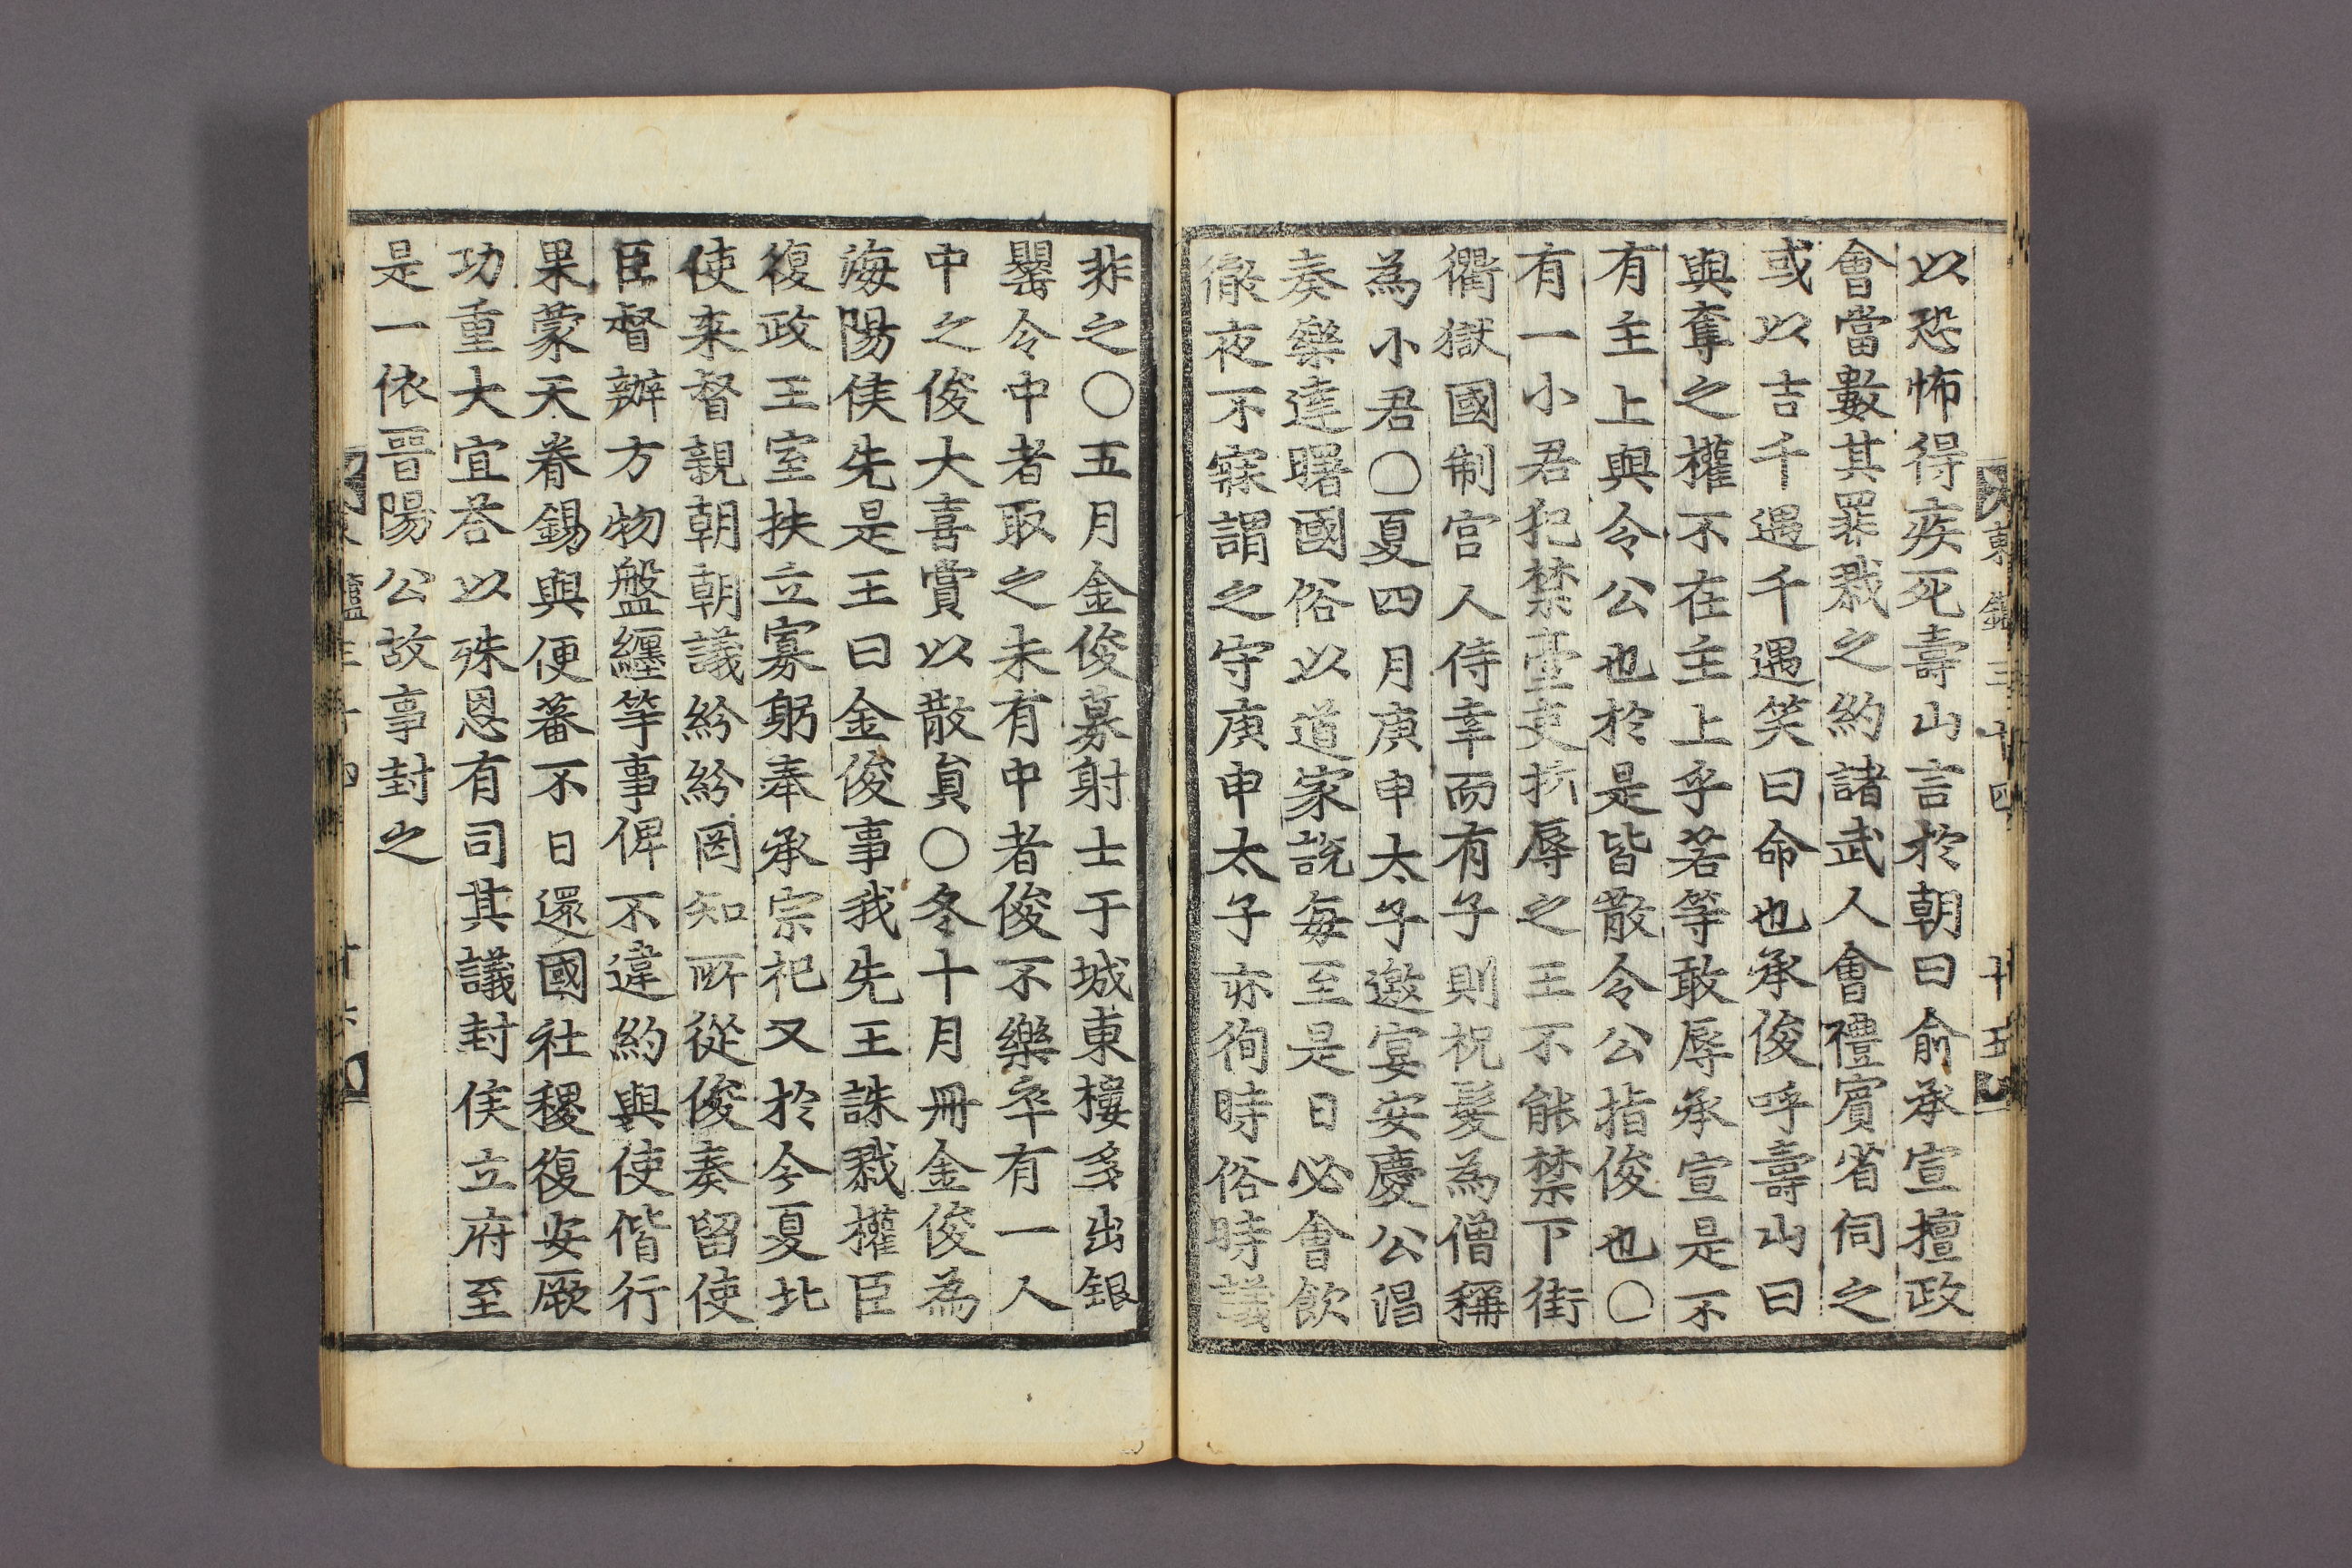 東鑑三十四 十五
以恐怖得疾死壽山言於朝曰俞承宣擅政
會當數其罪戮之約諸武人會禮賓省伺之
或以吉千遇千遇笑曰命也承俊呼壽山曰
與奪之權不在主上乎若等敢辱承宣是不
有主上與令公也於是皆散令公指俊也〇
有一小君犯禁臺吏折辱之王不能禁下街
衢獄國制宮人侍幸而有子則祝髮為僧稱
為小君〇夏四月庚申太子邀宴安慶公淐
奏樂達曙國俗以道家說每至是日必會飮
徹夜不寐謂之守庚申太子亦徇時俗時議
非之〇五月金俊募射士于城東樓多出銀
甖令中者取之未有中者俊不樂卒有一人
中之俊大喜賞以散員〇冬十月冊金俊為
海陽侯先是王曰金俊事我先王誅戮權臣
復政王室扶立寡躬奉承宗祀又於今夏北
使來督親朝朝議紛紛罔知所從俊奏留使
臣督辦方物盤纏等事俾不違約與使偕行
果蒙天眷錫與便蕃不日還國社稷復安厥
功重大宜荅以殊恩有司其議封侯立府至
是一依晉陽公故事封之